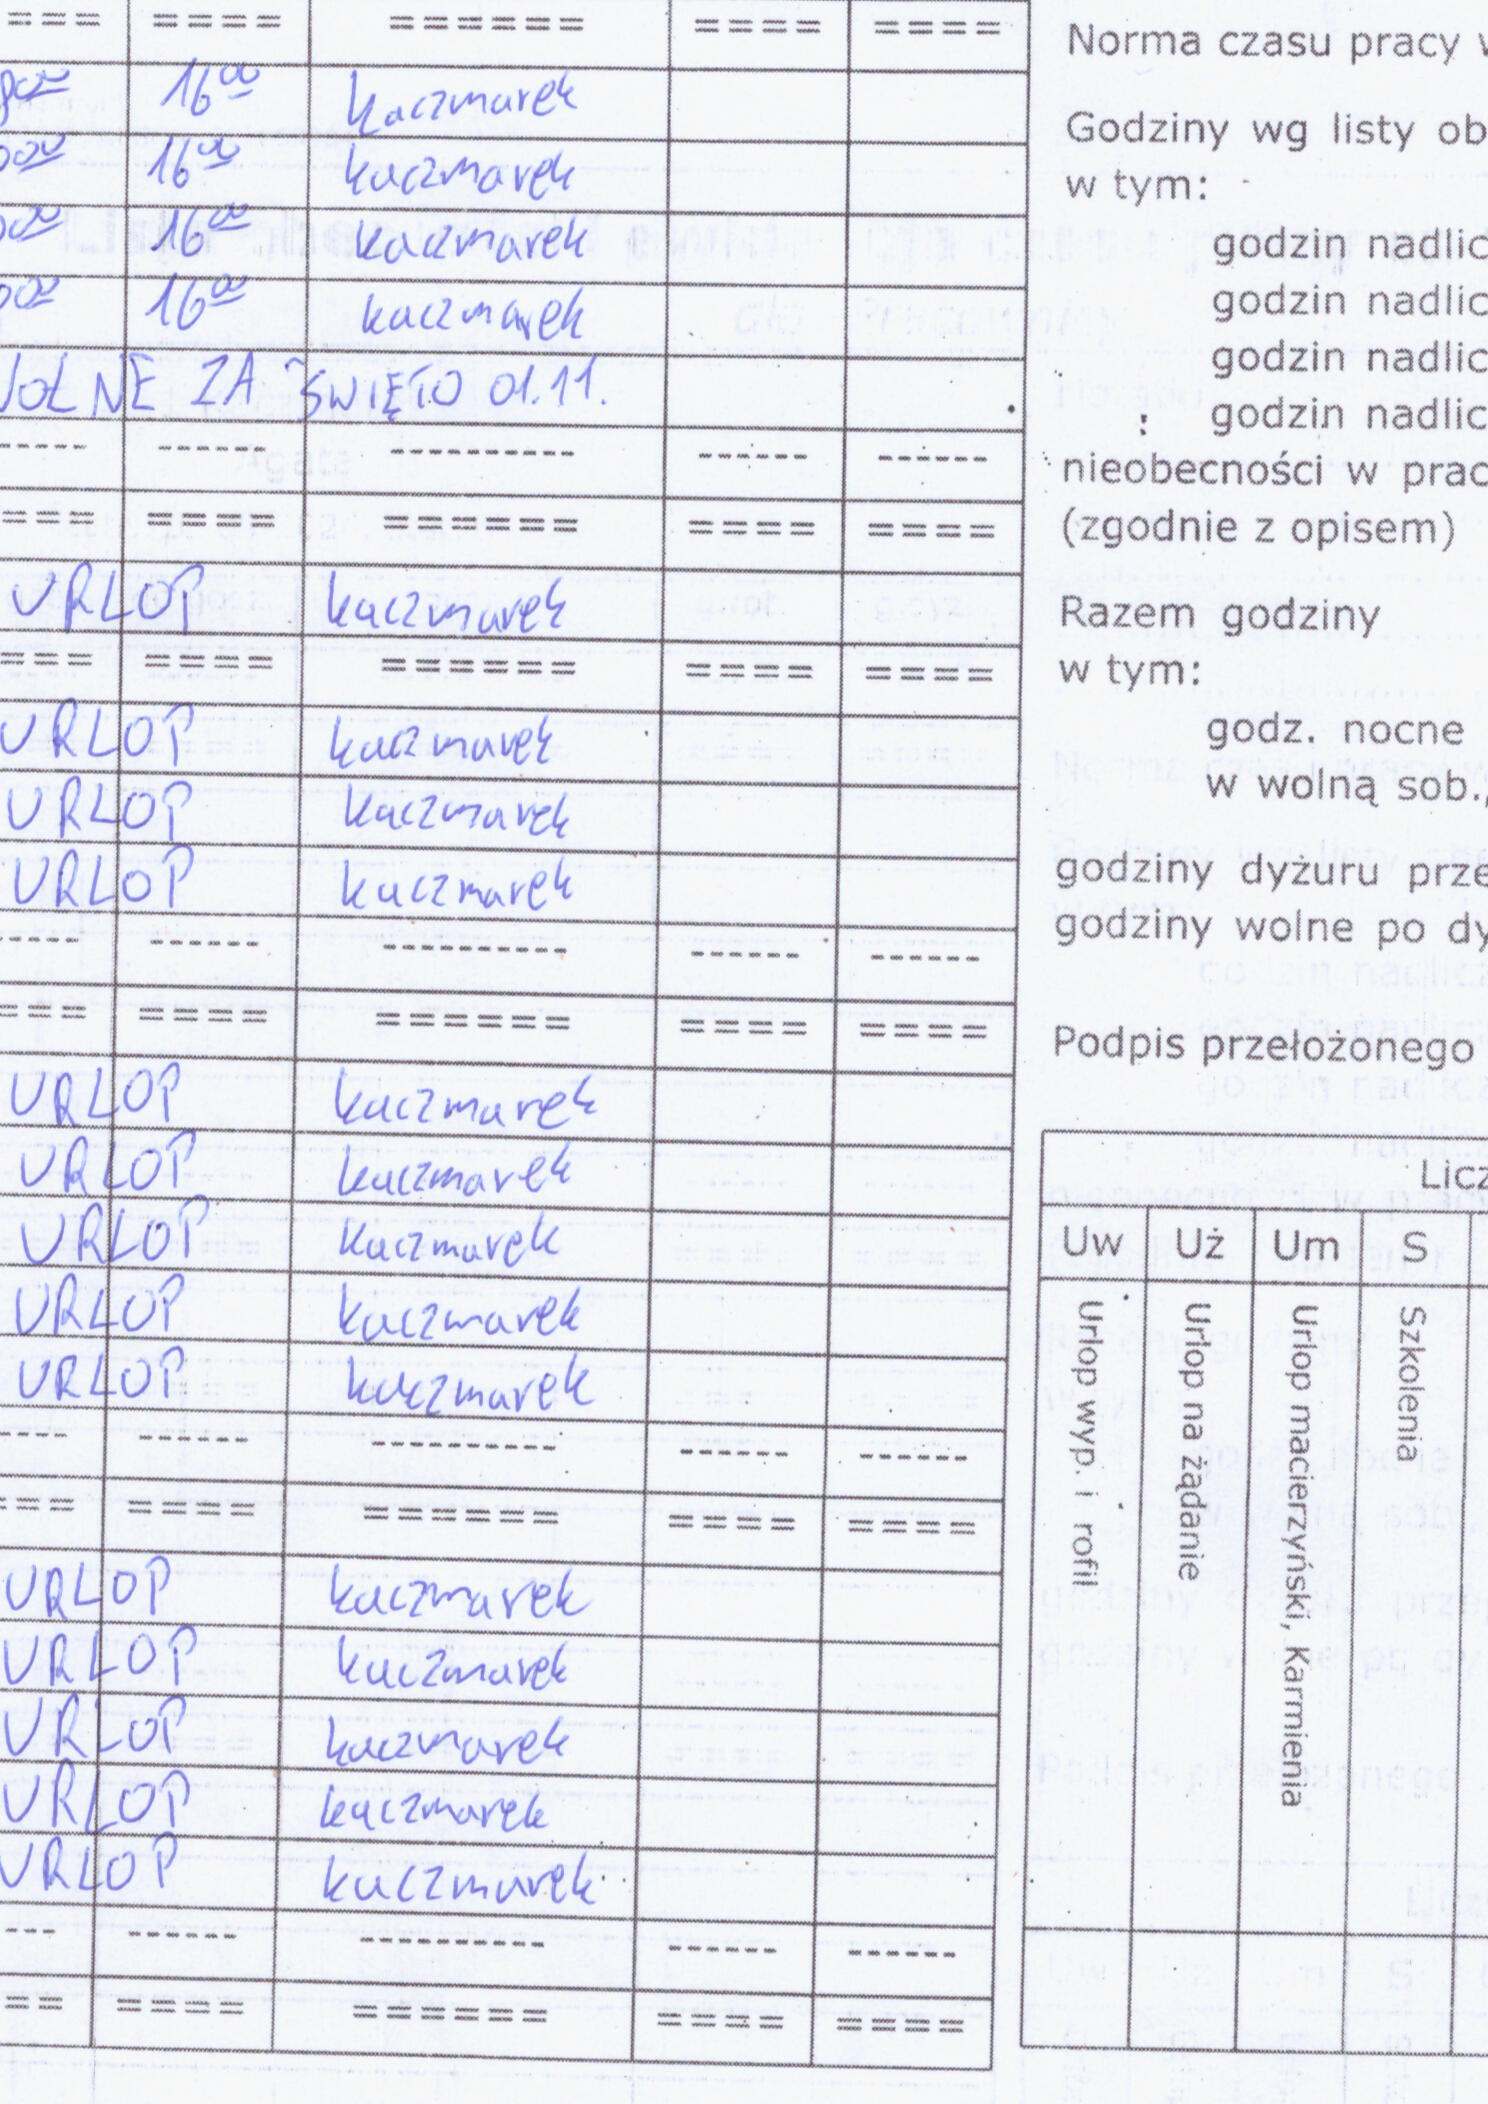 === ==== ====== ==== ====
16⁰⁰ Kaczmarek
16⁰⁰ Kaczmarek
16⁰⁰ Kaczmarek
16⁰⁰ Kaczmarek
WOLNE ZA ŚWIĘTO 01.11.
----- ------ ---------- ------ ------
==== ==== ====== ==== ====
URLOP Kaczmarek
=== ==== ====== ==== ====
URLOP Kaczmarek
URLOP Kaczmarek
URLOP Kaczmarek
----- ------ ---------- ------ ------
=== ==== ====== ==== ====
URLOP Kaczmarek
URLOP Kaczmarek
URLOP Kaczmarek
URLOP Kaczmarek
URLOP Kaczmarek
---- ------ ---------- ------ ------
=== ==== ====== ==== ====
URLOP Kaczmarek
URLOP Kaczmarek
URLOP Kaczmarek
URLOP Kaczmarek
URLOP Kaczmarek
--- ------ ---------- ------ ------
== ==== ====== ==== ====
Norma czasu pracy w
Godziny wg listy ob
w tym:
godzin nadlic
godzin nadlic
godzin nadlic
godzin nadlic
nieobecności w prac
(zgodnie z opisem)
Razem godziny
w tym:
godz. nocne
w wolną sob.,
godziny dyżuru prze
godziny wolne po dy
Podpis przełożonego
Licz
Uw Uż Um S
Urlop wyp. i rofil
Urlop na żądanie
Urlop macierzyński, Karmienia
Szkolenia